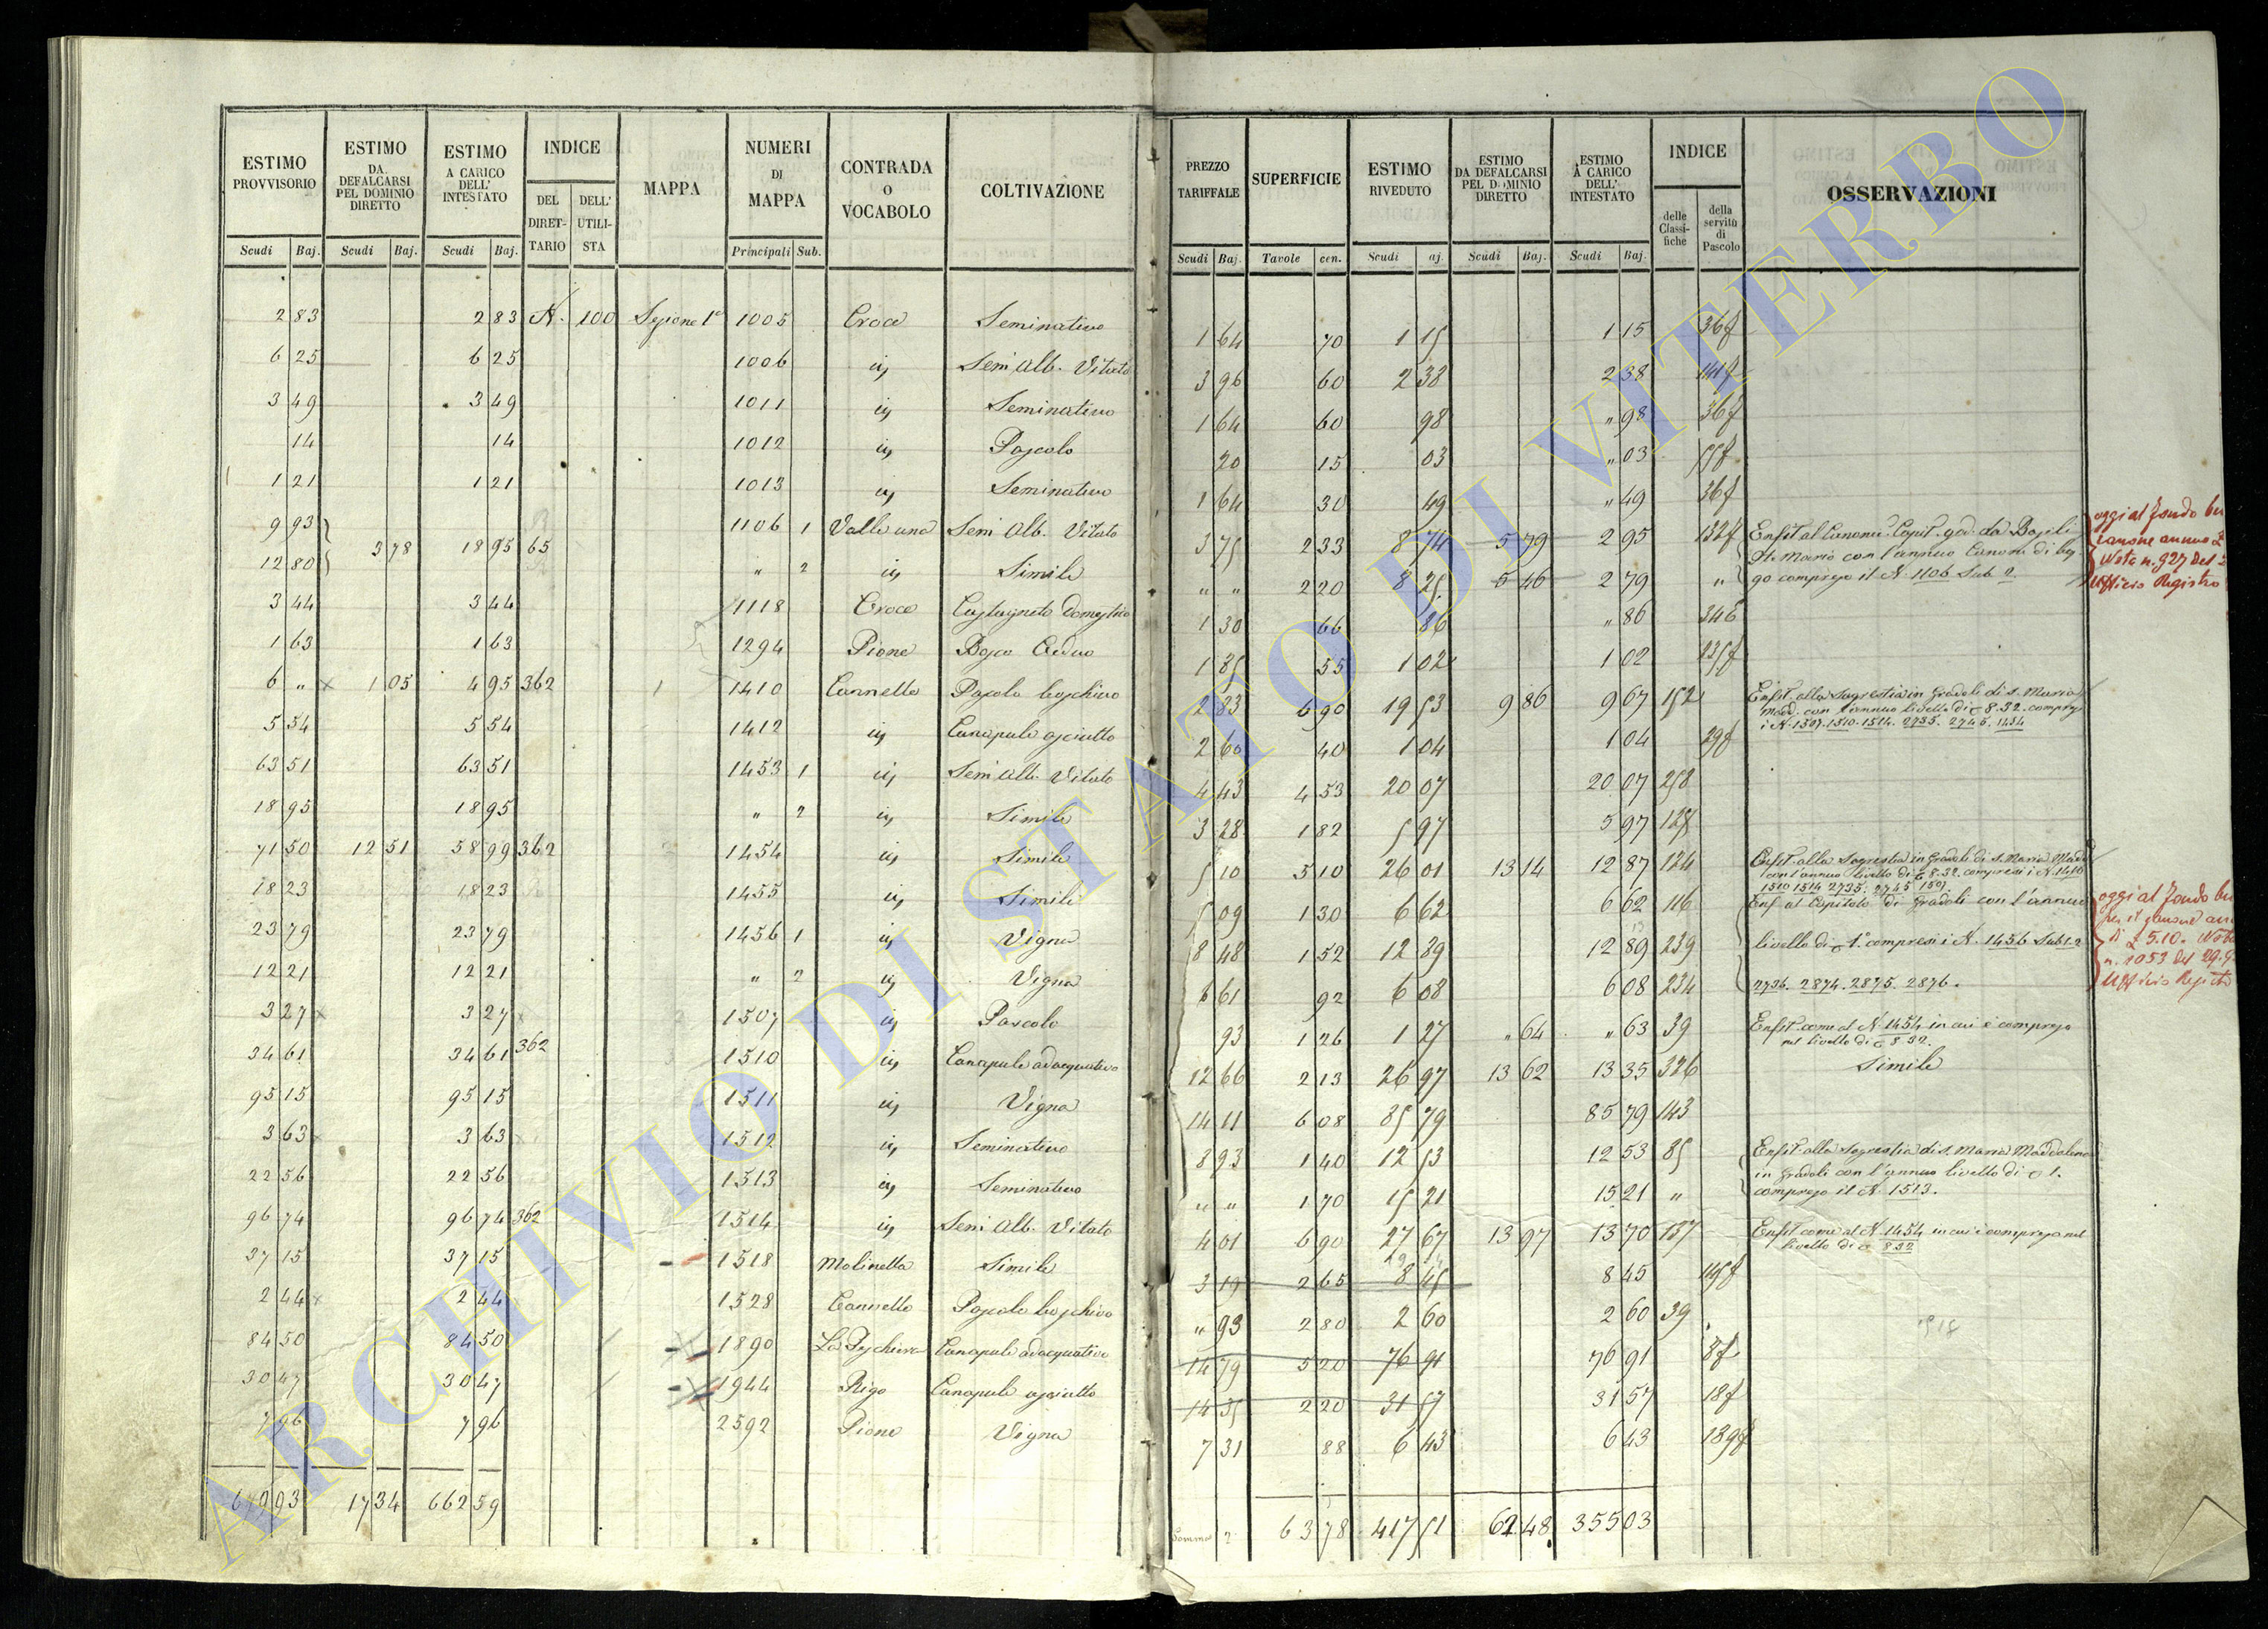 ESTIMO PROVVISORIO
ESTIMO DA DEFALCARSI PEL DOMINIO DIRETTO
ESTIMO A CARICO DELL' INTESTATO
INDICE
DEL DIRETTARIO
DELL' UTILISTA
MAPPA
NUMERI DI MAPPA
CONTRADA O VOCABOLO
COLTIVAZIONE
PREZZO TARIFFALE
SUPERFICIE
ESTIMO RIVEDUTO
ESTIMO DA DEFALCARSI PEL DOMINIO DIRETTO
ESTIMO A CARICO DELL' INTESTATO
INDICE
delle Classifiche
della servitù di Pascolo
OSSERVAZIONI
Scudi Baj. Scudi Baj. Scudi Baj. Principali Sub. Scudi Baj. Tavole cen. Scudi aj. Scudi Baj. Scudi Baj.
2 83 2 83 N. 100 Sezione 1ª 1005 Croce Seminativo 1 64 70 1 15 1 15 36f
6 25 6 25 1006 Sem Alb. Vitato 3 96 60 2 38 2 38
3 49 3 49 1011 Seminativo 1 64 60 98 " 98 36f
14 14 1012 Pascolo 20 15 03 " 03
1 21 1 21 1013 Seminativo 1 64 30 49 " 49 36f
9 93 3 78 18 95 65 1106 1 Sem Alb. Vitato 3 75 2 33 8 74 5 79 2 95 132f
12 80 " 2 Simile " " 2 20 8 25 5 46 2 79 "
go compreso il N. 1106 Sub 2.
3 44 3 44 1118 Croce Castagneto Domestico 1 30 66 86 " 86
1 63 1 63 1294 Pione Bosco Ceduo 1 85 55 1 02 1 02 235f
6 " 1 05 4 95 362 1410 Cannello Pascolo boschivo 2 83 6 90 19 53 9 86 9 67 152
Enfit. alla Sagrestia in Gradoli di S. Maria
Mad. con l'annuo livello di 8.32. compreso
i N. 1507. 1510. 1514. 2735. 2745. 1454
5 54 5 54 1412 Canapule asciutto 2 60 40 1 04 1 04 29f
63 51 63 51 1453 1 Sem Alb. Vitato 4 43 4 53 20 07 20 07 258
18 95 18 95 " 2 Simile 3 28 1 82 5 97 5 97
71 50 12 51 58 99 362 1454 Simile 5 10 5 10 26 01 13 14 12 87 124
Enfit. alla Sagrestia in Gradoli di S. Maria Mad
con l'annuo livello di 8.32. compresi i N. 1410
1510 1514 2735. 2745 1507
18 23 18 23 1455 Simile 5 09 1 30 6 62 6 62 116
Enf al Capitolo di Gradoli con l'annuo
23 79 23 79 1456 1 Vigna 8 48 1 52 12 89 12 89 239
livello di 1. compresi i N. 1456 Sub 1.2
12 21 12 21 " 2 Vigna 6 61 92 6 08 6 08 234
2736. 2874. 2875. 2876.
3 27 3 27 1507 Pascolo 93 1 26 1 27 " 64 " 63 39
Enfit. come al N. 1454 in cui è compreso
nel livello di 8 32.
34 61 34 61 362 1510 Canapule adacquativo 12 66 2 13 26 97 13 62 13 35 326 Simile
95 15 95 15 1511 Vigna 14 11 6 08 85 79 85 79 143
3 63 3 63 1512 Seminativo 8 93 1 40 12 53 12 53 85
Enfit. alla Sagrestia di S. Maria Maddalena
in Gradoli con l'annuo livello di 1.
22 56 22 56 1513 Seminativo " " 1 70 15 21 15 21 "
compreso il N. 1513.
96 74 96 74 362 1514 Sem Alb. Vitato 4 01 6 90 27 67 13 97 13 70 137
Enfit come al N. 1454 in cui è compreso nel
livello di 8 32
37 15 37 15 1518 Molinella Simile 3 19 2 65 8 45 8 45
2 44 2 44 1528 Cannello Pascolo boschivo " 93 2 80 2 60 2 60 39
84 50 84 50 1890 La Peschiera Canapule adacquativo 14 79 5 20 76 91 76 91
30 47 30 47 1944 Rigo Canapule asciutto 14 35 2 20 31 57 31 57 18f
7 96 7 96 2592 Pione Vigna 7 31 88 6 43 6 43 189f
93 17 34 662 59 Somma 63 78 417 51 62 48 355 03
oggi al Fondo
canone annuo
Nota n. 927 del
Ufficio Registro
oggi al Fondo
5.10. Nota
n. 1053 del 29.9
Ufficio Registro
ARCHIVIO DI STATO DI VITERBO